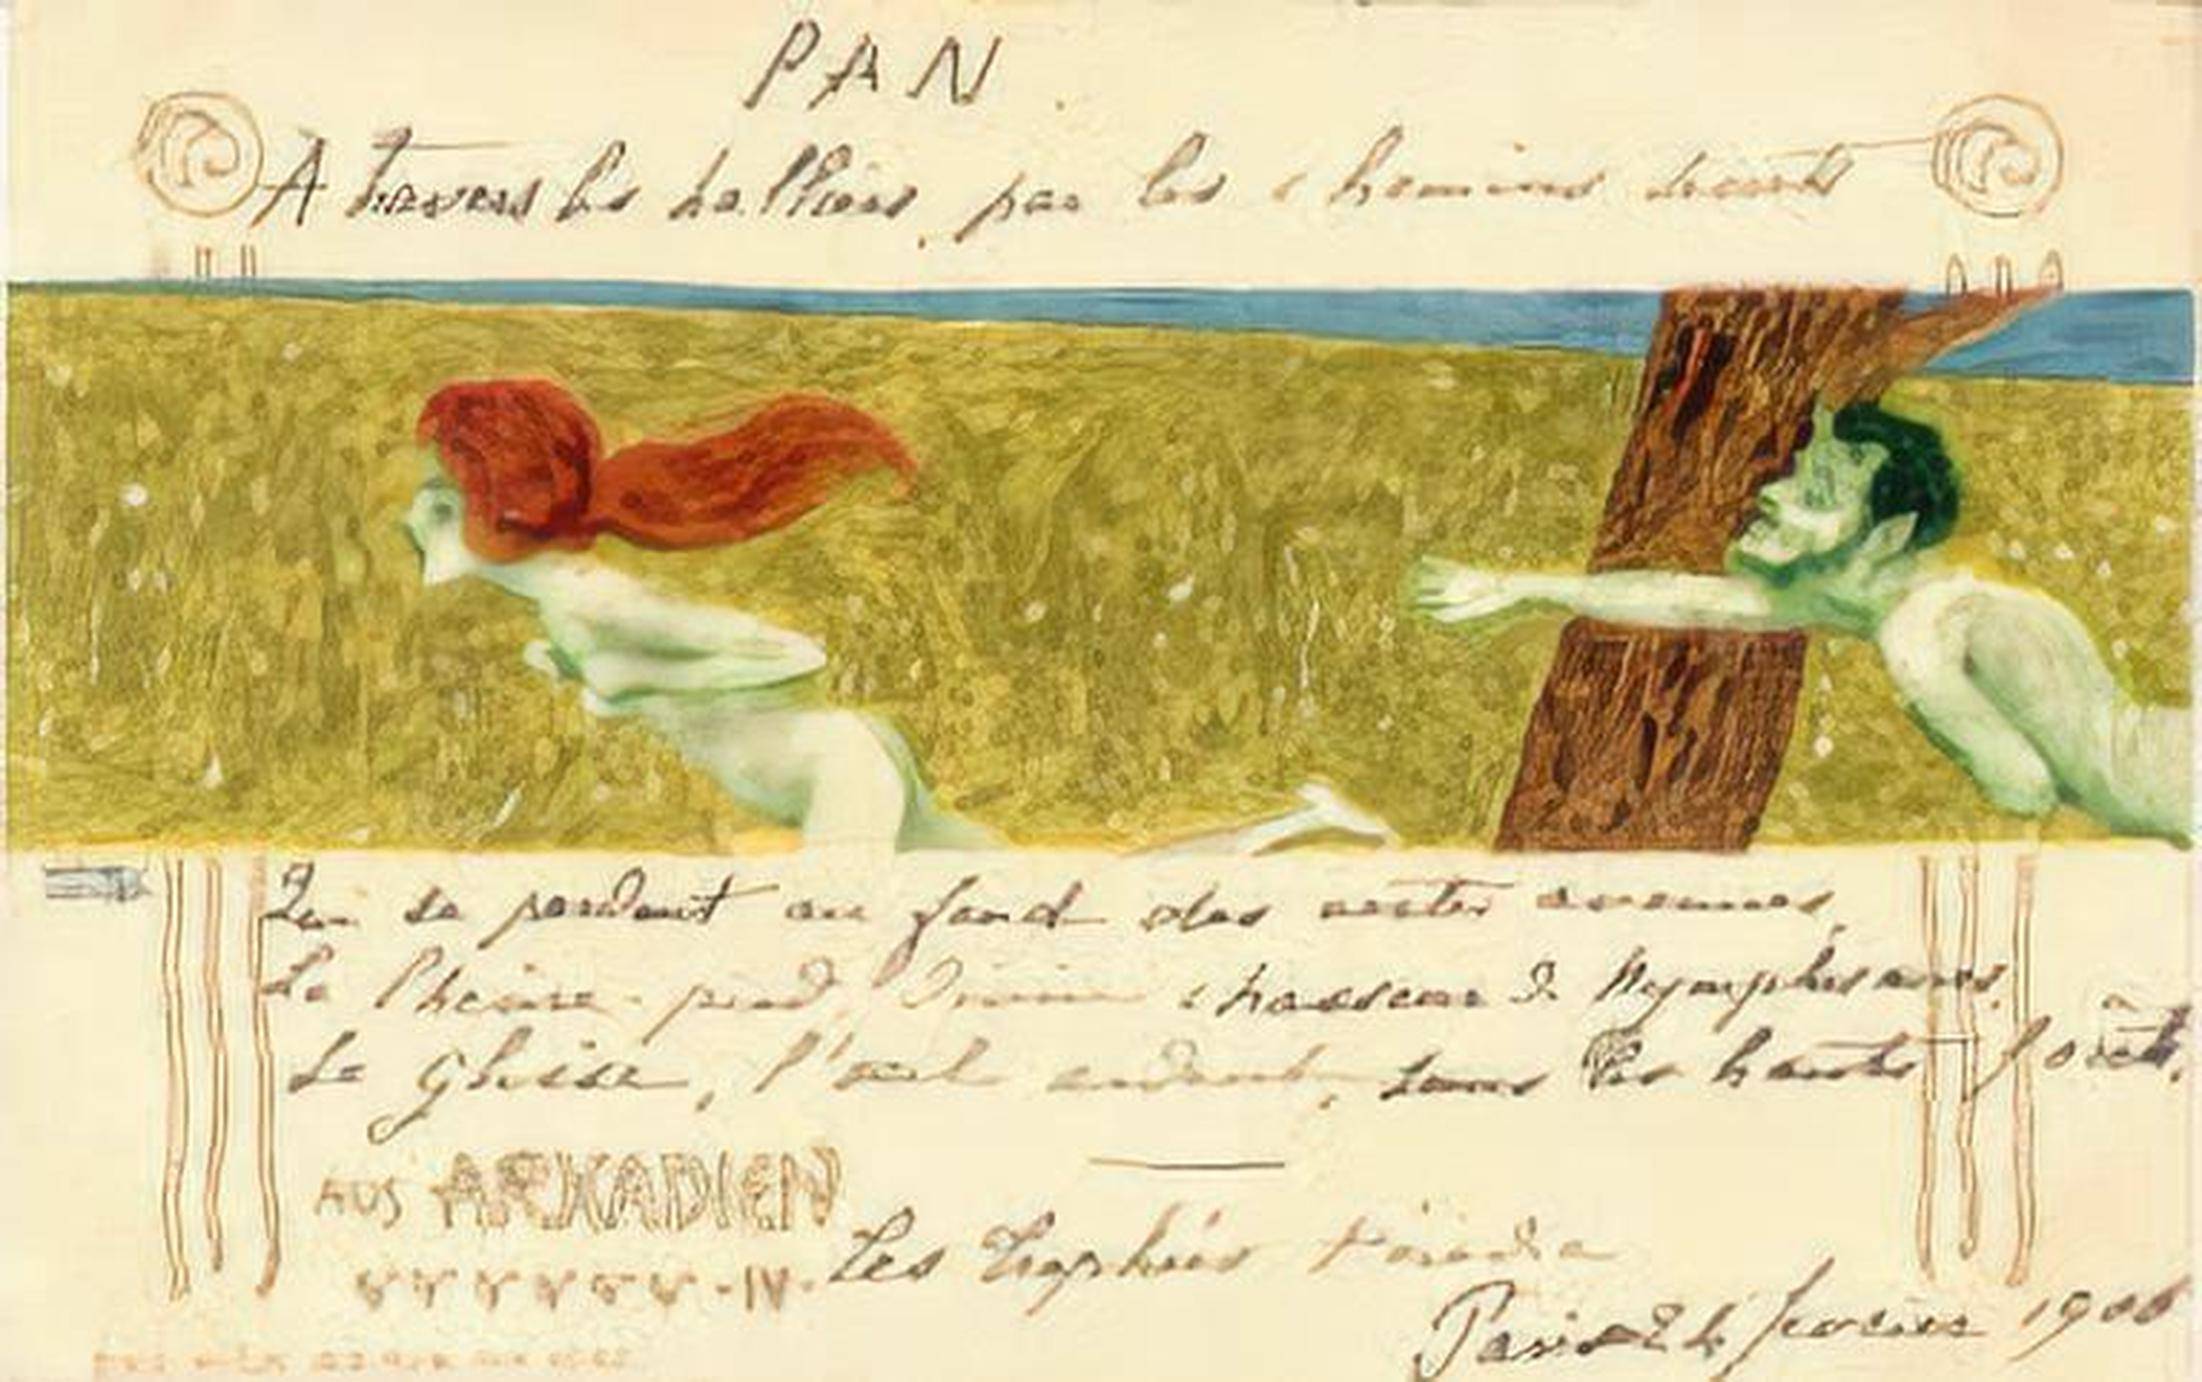 PAN
A travers les halliers, par les chemins secrets
Qui se perdent au fond des vertes avenues,
Le Chèvre-pied, divin chasseur de Nymphes nues,
Se glisse, l'œil ardent, sous les hauts forêts.
AUS ARKADIEN
-IV-
Les Trophées
Paris 24 février 1906